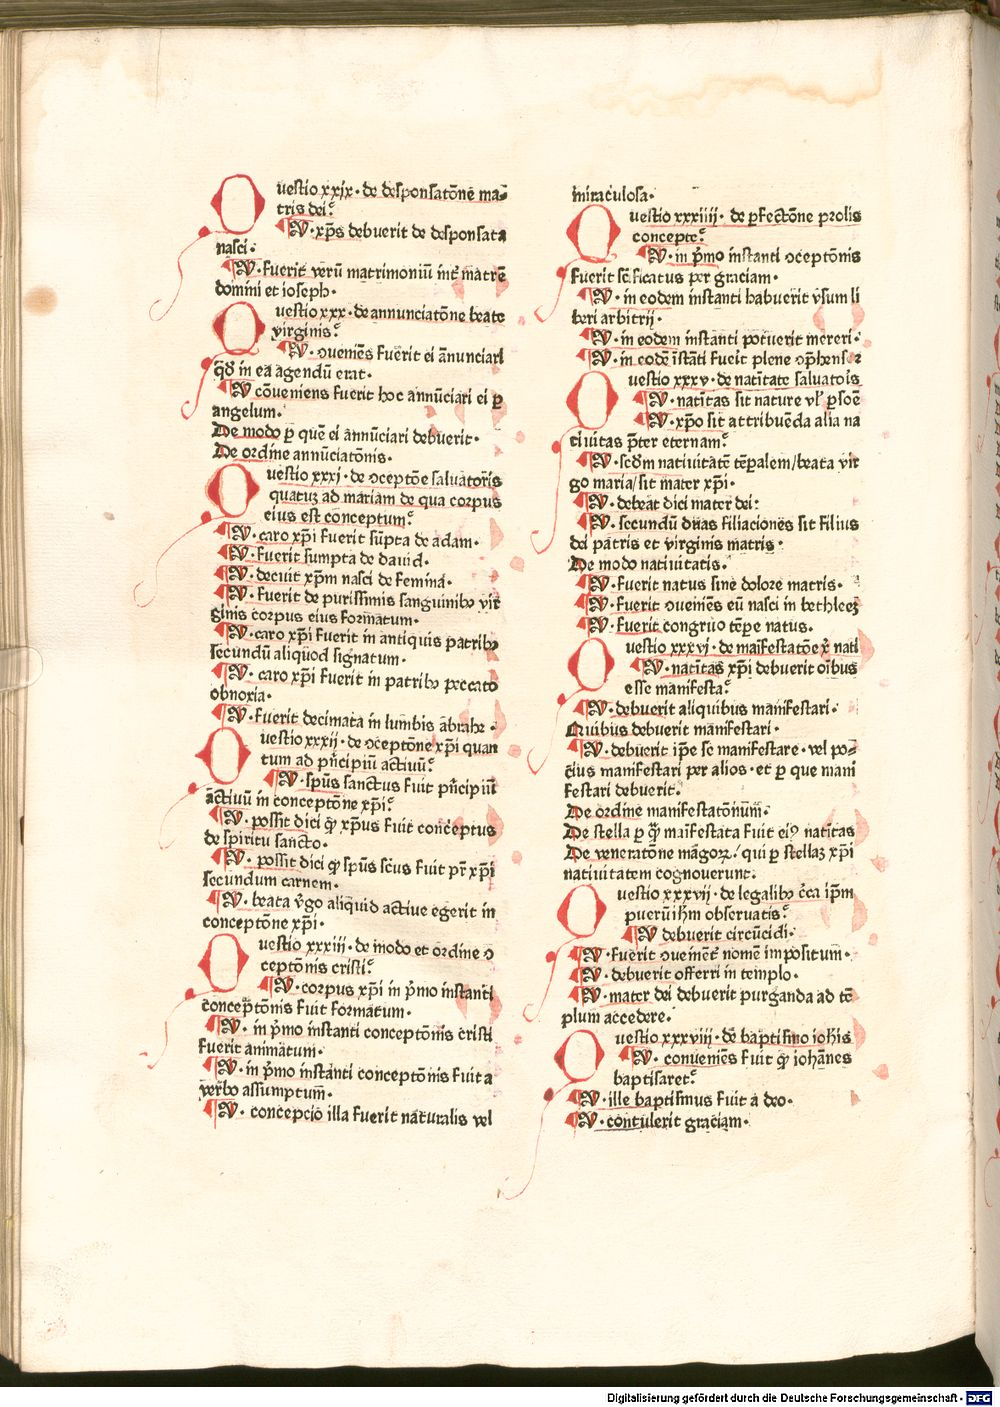 Questio xxix · de desponsatōne ma⸗
tris dei?
¶ V̄ · xp̄s debuerit de desponsata
nasci ·
¶ V̄ · fuerit verū matrimoniū int̄ matrē
domini et ioseph ·
Questio xxx · de annunciatōne beate
virginis?
¶ V̄ · ꝯueniēs fuerit ei ān̄unciari
qd̄ in ea agendū erat ·
¶ V̄ cōveniens fuerit hoc annūciari ei ꝑ
angelum ·
De modo ꝑ quē ei ann̄uciari debuerit ·
De ordine ann̄uciatōnis ·
Questio xxxi · de ꝯceptōe saluatoris
quatuꝫ ad mariam de qua corpus
eius est conceptum?
¶ V̄ · caro xp̄i fuerit sūpta de adam ·
¶ V̄ · fuerit sumpta de dauid ·
¶ V̄ · decuit xp̄m nasci de femina ·
¶ V̄ · fuerit de purissimis sanguinibꝫ vir
ginis corpus eius formatum ·
¶ V̄ · caro xp̄i fuerit in antiquis patribꝫ
secundū aliquod signatum ·
¶ V̄ · caro xp̄i fuerit in patribꝫ peccato
obnoxia ·
¶ V̄ · fuerit decimata in lumbis abrahe ·
Questio xxxii · de ꝯceptōne xp̄i quan
tum ad pn̄cipiū activū?
¶ V̄ · spūs sanctus fuit pn̄cipiū
āctivū in conceptōne xp̄i?
¶ V̄ · possit dici ꝙ xp̄us fuit conceptus
de spiritu sancto ·
¶ V̄ · possit dici ꝙ spūs scūs fuit pr̄ xp̄i
secundum carnem ·
¶ V̄ · beata v̄go aliquid active egerit in
conceptōne xp̄i ·
Questio xxxiii · de modo et ordine ꝯ
ceptōnis cristi?
¶ V̄ · corpus xp̄i in pͥmo instanti
conceptōnis fuit formatum ·
¶ V̄ · in pͥmo instanti conceptōnis cristi
fuerit animatum ·
¶ V̄ · in pͥmo instanti conceptōnis fuit a
verbo assumptum ·
¶ V̄ · concepcio illa fuerit naturalis vel
miraculosa ·
Questio xxxiiii · de ꝑfectōne prolis
concepte?
¶ V̄ · in pͥmo instanti ꝯceptōnis
fuerit sc̄ificatus per graciam ·
¶ V̄ · in eodem instanti habuerit vsum li
beri arbitrii ·
¶ V̄ · in eodem instanti potuerit mereri ·
¶ V̄ · in eodē īstāti fueīt plene ꝯp̄hensor
Questio xxxv · de natītate saluatoīs
¶ V̄ · natītas sit nature vl̄ ꝑsoē
¶ V̄ · xp̄o sit attribuēda alia na
tiuitas p̄ter eternam?
¶ V̄ · scd̄m natiuitatē tēpalem/beata vir
go maria/sit mater xp̄i ·
¶ V̄ · debeat dici mater dei:
¶ V̄ · secundū duas filiaciones sit filius
dei patris et virginis matris ·
De modo natiuitatis ·
¶ V̄ · fuerit natus sine dolore matris ·
¶ V̄ · fuerit ꝯueniēs eū nasci in bethleeꝫ
¶ V̄ · fuerit congruo tēpe natus ·
Questio xxxvi · de maīfestatōe xͥ nati
¶ V̄ · natītas xp̄i debuerit oībus
esse manifesta?
¶ V̄ · debuerit aliquibus manifestari ·
Quibus debuerit manifestari ·
¶ V̄ · debuerit ip̄e se manifestare · vel po⸗
cius manifestari per alios · et ꝑ que mani
festari debuerit ·
De ordine manifestatōnum ·
De stella ꝑ qͣ maīfestata fuit eiꝰ natītas
De veneratōne māgoꝝ / qui ꝑ stellaꝫ xp̄i
natiuitatem cognouerunt:
Questio xxxvii · de legalibꝫ c̄ca ip̄m
puerū ihm̄ obseruatis?
¶ V̄ debuerit circūcidi ·
¶ V̄ · fuerit ꝯueniēt̄ nomē impositum ·
¶ V̄ · debuerit offerri in templo ·
¶ V̄ · mater dei debuerit purganda ad tē
plum accedere ·
Questio xxxviii · de baptismo ioh̄is
¶ V̄ · conueniēs fuit ꝙ ioh̄anes
baptisaret?
¶ V̄ · ille baptismus fuit a deo ·
¶ V̄ · contulerit graciam ·
Digitalisierung gefördert durch die Deutsche Forschungsgemeinschaft · DFG